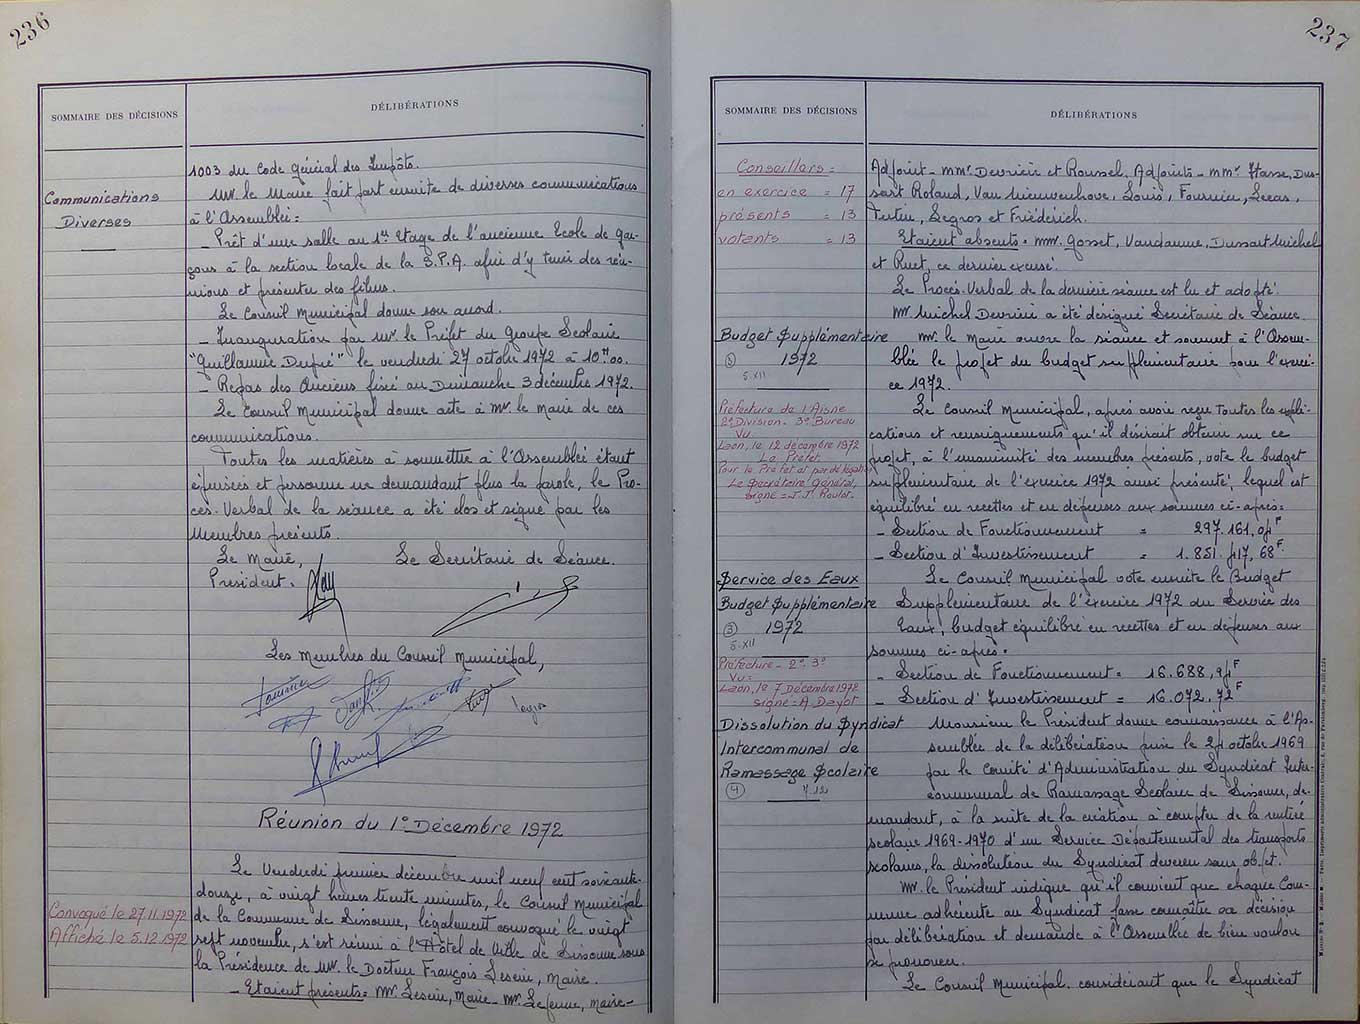 236
SOMMAIRE DES DÉCISIONS
DÉLIBÉRATIONS
1003 du Code Général des Impôts.
Communications
Diverses
Mr. le Maire fait part ensuite de diverses communications
à l'Assemblée :
- Prêt d'une salle au 1er Etage de l'ancienne Ecole de Gar-
çons à la section locale de la S.P.A. afin d'y tenir des réu-
nions et présenter des films.
Le Conseil Municipal donne son accord.
- Inauguration par Mr. le Préfet du Groupe Scolaire
"Guillaume Dupré" le vendredi 27 octobre 1972 à 10H00.
- Repas des Anciens fixé au Dimanche 3 décembre 1972.
Le Conseil Municipal donne acte à Mr. le Maire de ces
communications.
Toutes les matières à soumettre à l'Assemblée étant
épuisées et personne ne demandant plus la parole, le Pro-
cès-Verbal de la séance a été clos et signé par les
Membres présents.
Le Maire, Le Secrétaire de Séance.
Président.
Les Membres du Conseil Municipal,
Réunion du 1° Décembre 1972
Le Vendredi premier décembre mil neuf cent soixante-
douze, à vingt heures trente minutes, le Conseil Municipal
Convoqué le 27.11.1972
Affiché le 5.12.1972
de la Commune de Sissonne, légalement convoqué le vingt
sept novembre, s'est réuni à l'Hôtel de Ville de Sissonne sous
la Présidence de Mr. le Docteur François Lesein, Maire.
- Etaient présents = MM. Lesein, Maire - Mr. Lefevre, Maire-
237
SOMMAIRE DES DÉCISIONS
DÉLIBÉRATIONS
Conseillers =
en exercice = 17
présents = 13
votants = 13
Adjoint - MMrs Devrière et Roussel, Adjoints - MMrs Hasse, Dus-
sart Roland, Van Nieuwenhove, Louis, Fournier, Lecas,
Tutin, Legros et Friédérich.
Etaient absents = MM. Gosset, Vandamme, Dussart Michel
et Ruet, ce dernier excusé.
Le Procès-Verbal de la dernière séance est lu et adopté.
Mr Michel Devrière a été désigné Secrétaire de Séance.
Budget Supplémentaire
1972
5.XII
Mr. le Maire ouvre la séance et soumet à l'Assem-
blée le projet du budget supplémentaire pour l'exerci-
ce 1972.
Préfecture de l'Aisne
2° Division. 3° Bureau
Vu
Laon, le 12 décembre 1972
Le Préfet
Pour le Préfet et par délégation
Le Secrétaire Général,
signé = J.J.
Le Conseil Municipal, après avoir reçu toutes les expli-
cations et renseignements qu'il désirait obtenir sur ce
projet, à l'unanimité des membres présents, vote le budget
supplémentaire de l'exercice 1972 ainsi présenté, lequel est
équilibré en recettes et en dépenses aux sommes ci-après :
- Section de Fonctionnement = 297.161,04F
- Section d'Investissement = 1.851.417,68F.
Service des Eaux
Budget Supplémentaire
③ 1972
5.XII
Le Conseil Municipal vote ensuite le Budget
Supplémentaire de l'exercice 1972 du Service des
Eaux, budget équilibré en recettes et en dépenses aux
sommes ci-après.
Préfecture - 2° 3°
Vu =
Laon, le 7 Décembre 1972
signé = A. Dayot
- Section de Fonctionnement = 16.688,94F
- Section d'Investissement = 16.072,72F
Dissolution du Syndicat
Intercommunal de
Ramassage Scolaire
④ 7.12
Monsieur le Président donne connaissance à l'As-
semblée de la délibération prise le 24 octobre 1969
par le Comité d'Administration du Syndicat Inter-
communal de Ramassage Scolaire de Sissonne, de-
mandant, à la suite de la création à compter de la rentrée
scolaire 1969-1970 d'un Service Départemental des transports
scolaires, la dissolution du Syndicat devenu sans objet.
Mr. le Président indique qu'il convient que chaque Com-
mune adhérente au Syndicat fasse connaître sa décision
par délibération et demande à l'Assemblée de bien vouloir
se prononcer.
Le Conseil Municipal, considérant que le Syndicat